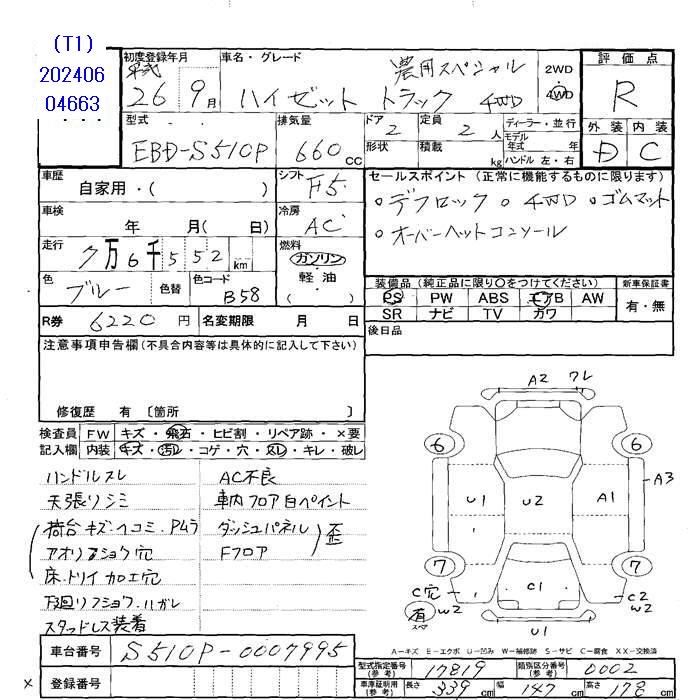 (T1)
202406
04663
初度登録年月
平成
26 9月
車名・グレード
農用スペシャル
ハイゼット トラック 4WD
2WD
4WD
評価点
R
外装 内装
D C
型式
EBD-S510P
排気量
660 cc
ドア
2
定員
2 人
形状
積載 kg
ディーラー・並行
モデル
年式 年
ハンドル 左・右
車歴
自家用・( )
シフト
F5
車検
年 月( 日)
冷房
AC
走行
7万6千552 km
燃料
ガソリン
軽油
( )
色
ブルー
色替
色コード
B58
セールスポイント (正常に機能するものに限ります)
○デフロック ○4WD ○ゴムマット
○オーバーヘットコンソール
装備品 (純正品に限り○をつけてください)
新車保証書
PS PW ABS エアB AW
SR ナビ TV カワ
有・無
R券 6220円 名変期限 月 日
後日品
注意事項申告欄(不具合内容等は具体的に記入して下さい)
修復歴 有 〔箇所 〕
検査員
記入欄
FW キズ・飛石・ヒビ割・リペア跡・×要
内装 キズ・汚れ・コゲ・穴・スレ・キレ・破レ
ハンドルスレ AC不良
天張りシミ 車内フロア白ペイント
荷台キズ・ヘコミ・Pムラ ダッシュパネル
歪
アオリフショク穴 Fフロア
床・トリイ加工穴
下廻リフショク・ハガレ
スタッドレス装着
A2 ワレ
6 6
A3
U1 U2 A1
7 7
C穴 C1 C2
W2 W2
有
スペア
U1
A-キズ E-エクボ U-凹み W-補修跡 S-サビ C-腐食 XX-交換済
車台番号 S510P-0007995
登録番号
×
型式指定番号
(参考)
17819
類別区分番号
(参考)
0002
車庫証明用
(参考)
長さ 339 cm 幅 147 cm 高さ 178 cm